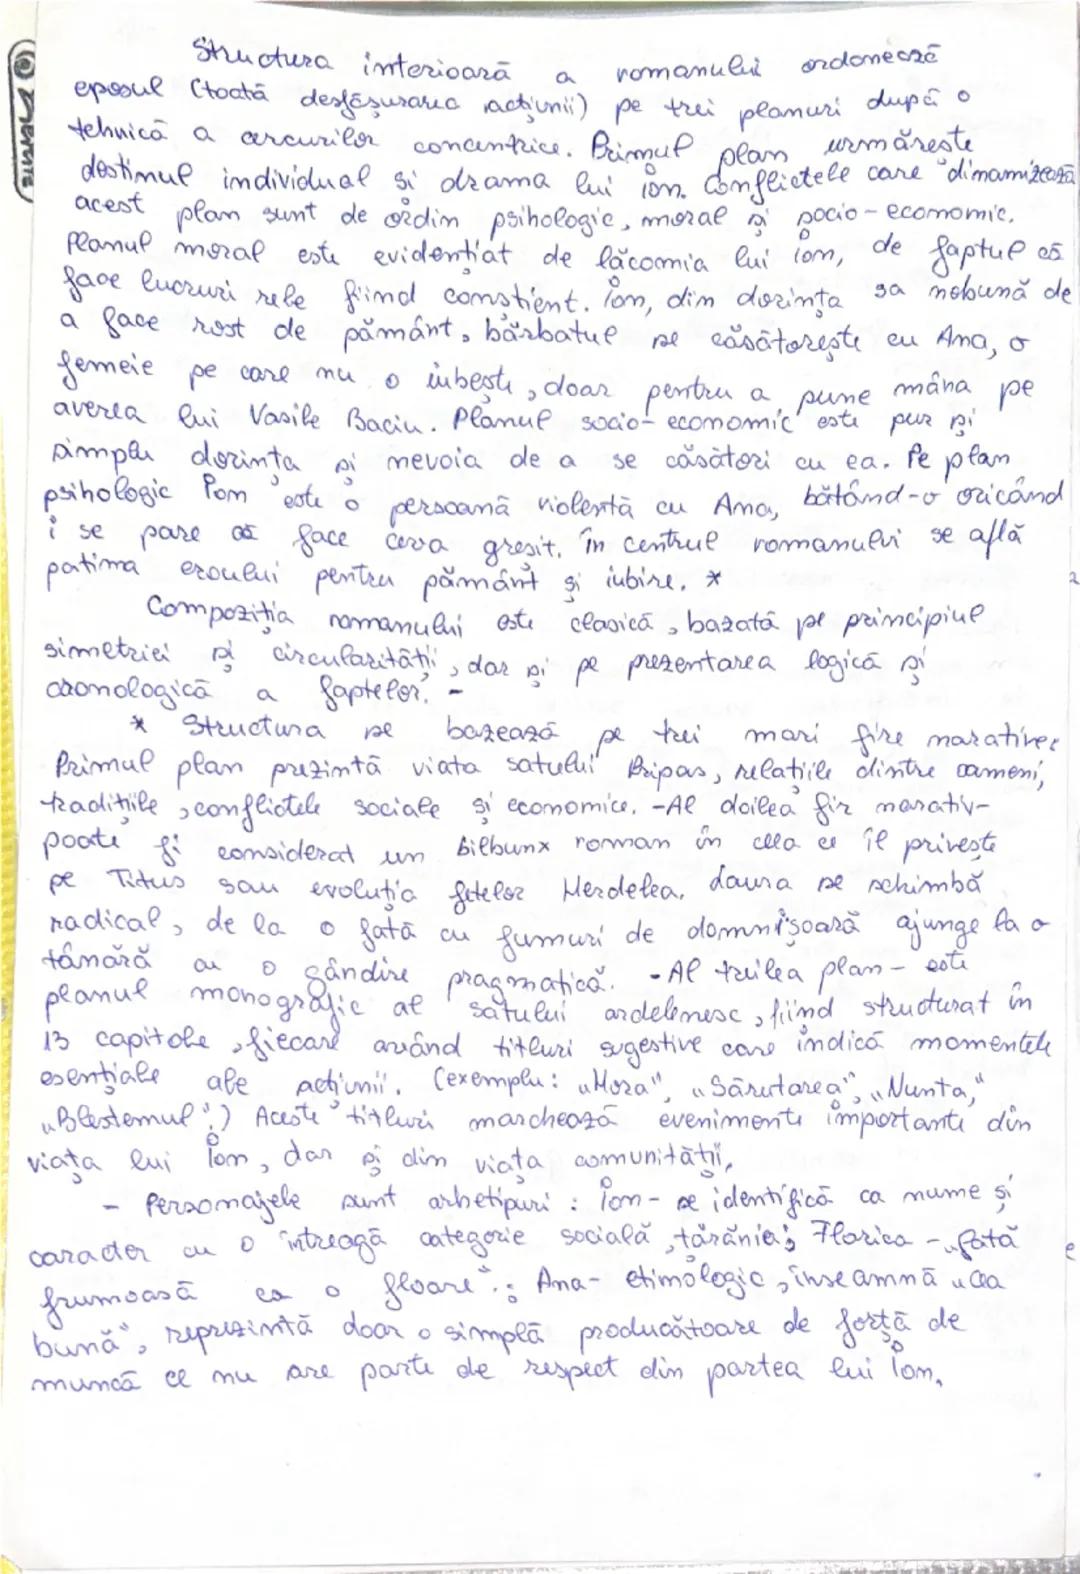 Structura interioară a romanului ordonează
eposul (toată desfășurarea acțiunii) pe trei planuri după o
tehnică a cercurilor concentrice. Primul plan urmărește
destinul individual și drama lui Ion. Conflictele care dinamizează
acest plan sunt de ordin psihologic, moral și socio-economic.
Planul moral este evidențiat de lăcomia lui Ion, de faptul că
face lucruri rele fiind conștient. Ion, din dorința sa nebună de
a face rost de pământ, bărbatul se căsătorește cu Ana, o
femeie pe care nu o iubește, doar pentru a pune mâna pe
averea lui Vasile Baciu. Planul socio-economic este pur și
simplu dorința și nevoia de a se căsători cu ea. Pe plan
psihologic Ion este o persoană violentă cu Ana, bătând-o oricând
i se pare că face ceva greșit. În centrul romanului se află
patima eroului pentru pământ și iubire. *
Compoziția romanului este clasică, bazată pe principiul
simetriei și circularității, dar și pe prezentarea logică și
cronologică a faptelor. -
* Structura se bazează pe trei mari fire narative:
Primul plan prezintă viata satului Pripas, relațiile dintre oameni,
tradițiile, conflictele sociale și economice. - Al doilea fir narativ-
poate fi considerat un bilbunx roman în ceea ce îl privește
pe Titus sau evoluția fetelor Herdelea. Laura se schimbă
radical, de la o fată cu fumuri de domnișoară ajunge la o
tânără cu o gândire pragmatică. - Al treilea plan - este
planul monografic al satului ardelenesc, fiind structurat în
13 capitole, fiecare având titluri sugestive care indică momentele
esențiale ale acțiunii. (exemplu: „Hora", „Sărutarea", „Nunta,"
„Blestemul".) Aceste titluri marchează evenimente importante din
viața lui Ion, dar și din viața comunității.
- Personajele sunt arhetipuri: Ion - se identifică ca nume și
caracter cu o întreagă categorie socială, țărănia; Florica - „fată
frumoasă ca o floare".; Ana - etimologic, înseamnă „cea
bună", reprezintă doar o simplă producătoare de forță de
muncă ce nu are parte de respect din partea lui Ion.